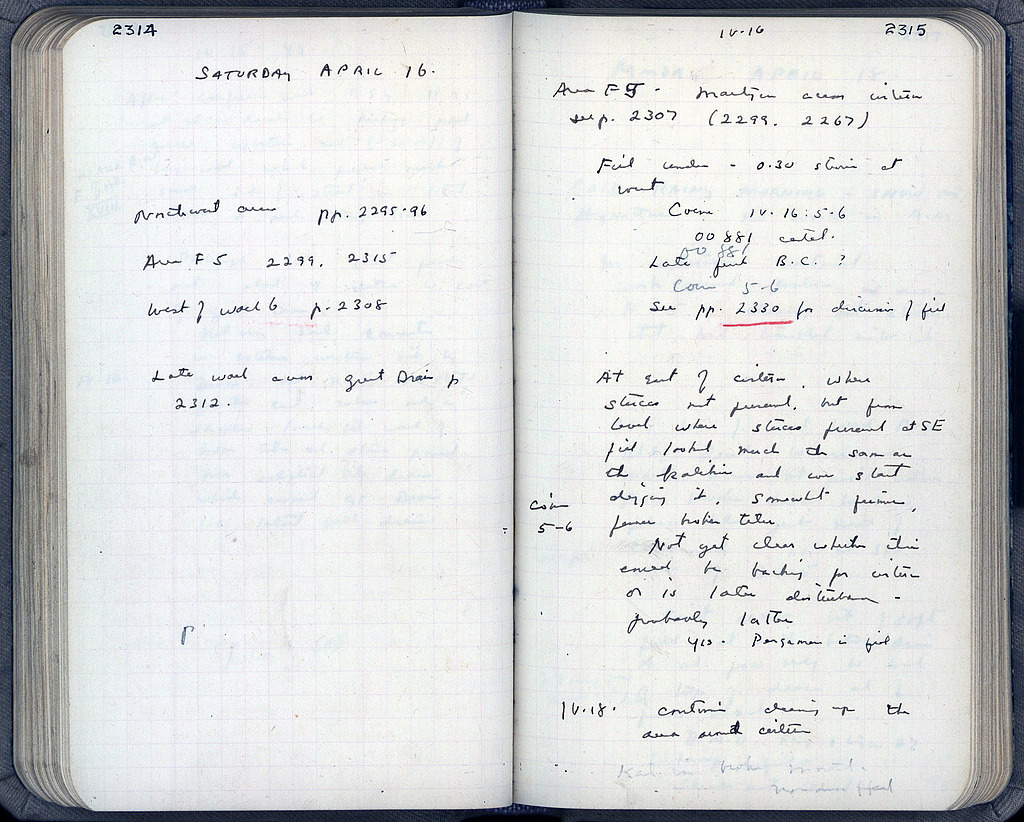 2314
SATURDAY APRIL 16.
Northwest area pp. 2295-96
Area F5 2299, 2315
West of wall 6 p. 2308
Late wall across great Drain p
2312.
IV-16 2315
Area F5 - area cistern
see p. 2307 (2299, 2267)
Fill under - 0.30 stereo at
west
Coin IV.16:5-6
00881 catal.
00881
Late first B.C. ?
Coin 5-6
See pp. 2330 for discussion of fill
At east of cistern, where
stereo not present, but from
level where stereo present at SE
fill looked much the same as
the and we start
digging it, somewhat firmer,
fewer broken tiles.
Coin
5-6
Not yet clear whether this
could be backing for cistern
or is later disturbance -
probably latter
Yes - Pergamene in fill
IV.18. continue cleaning up the
area around cistern